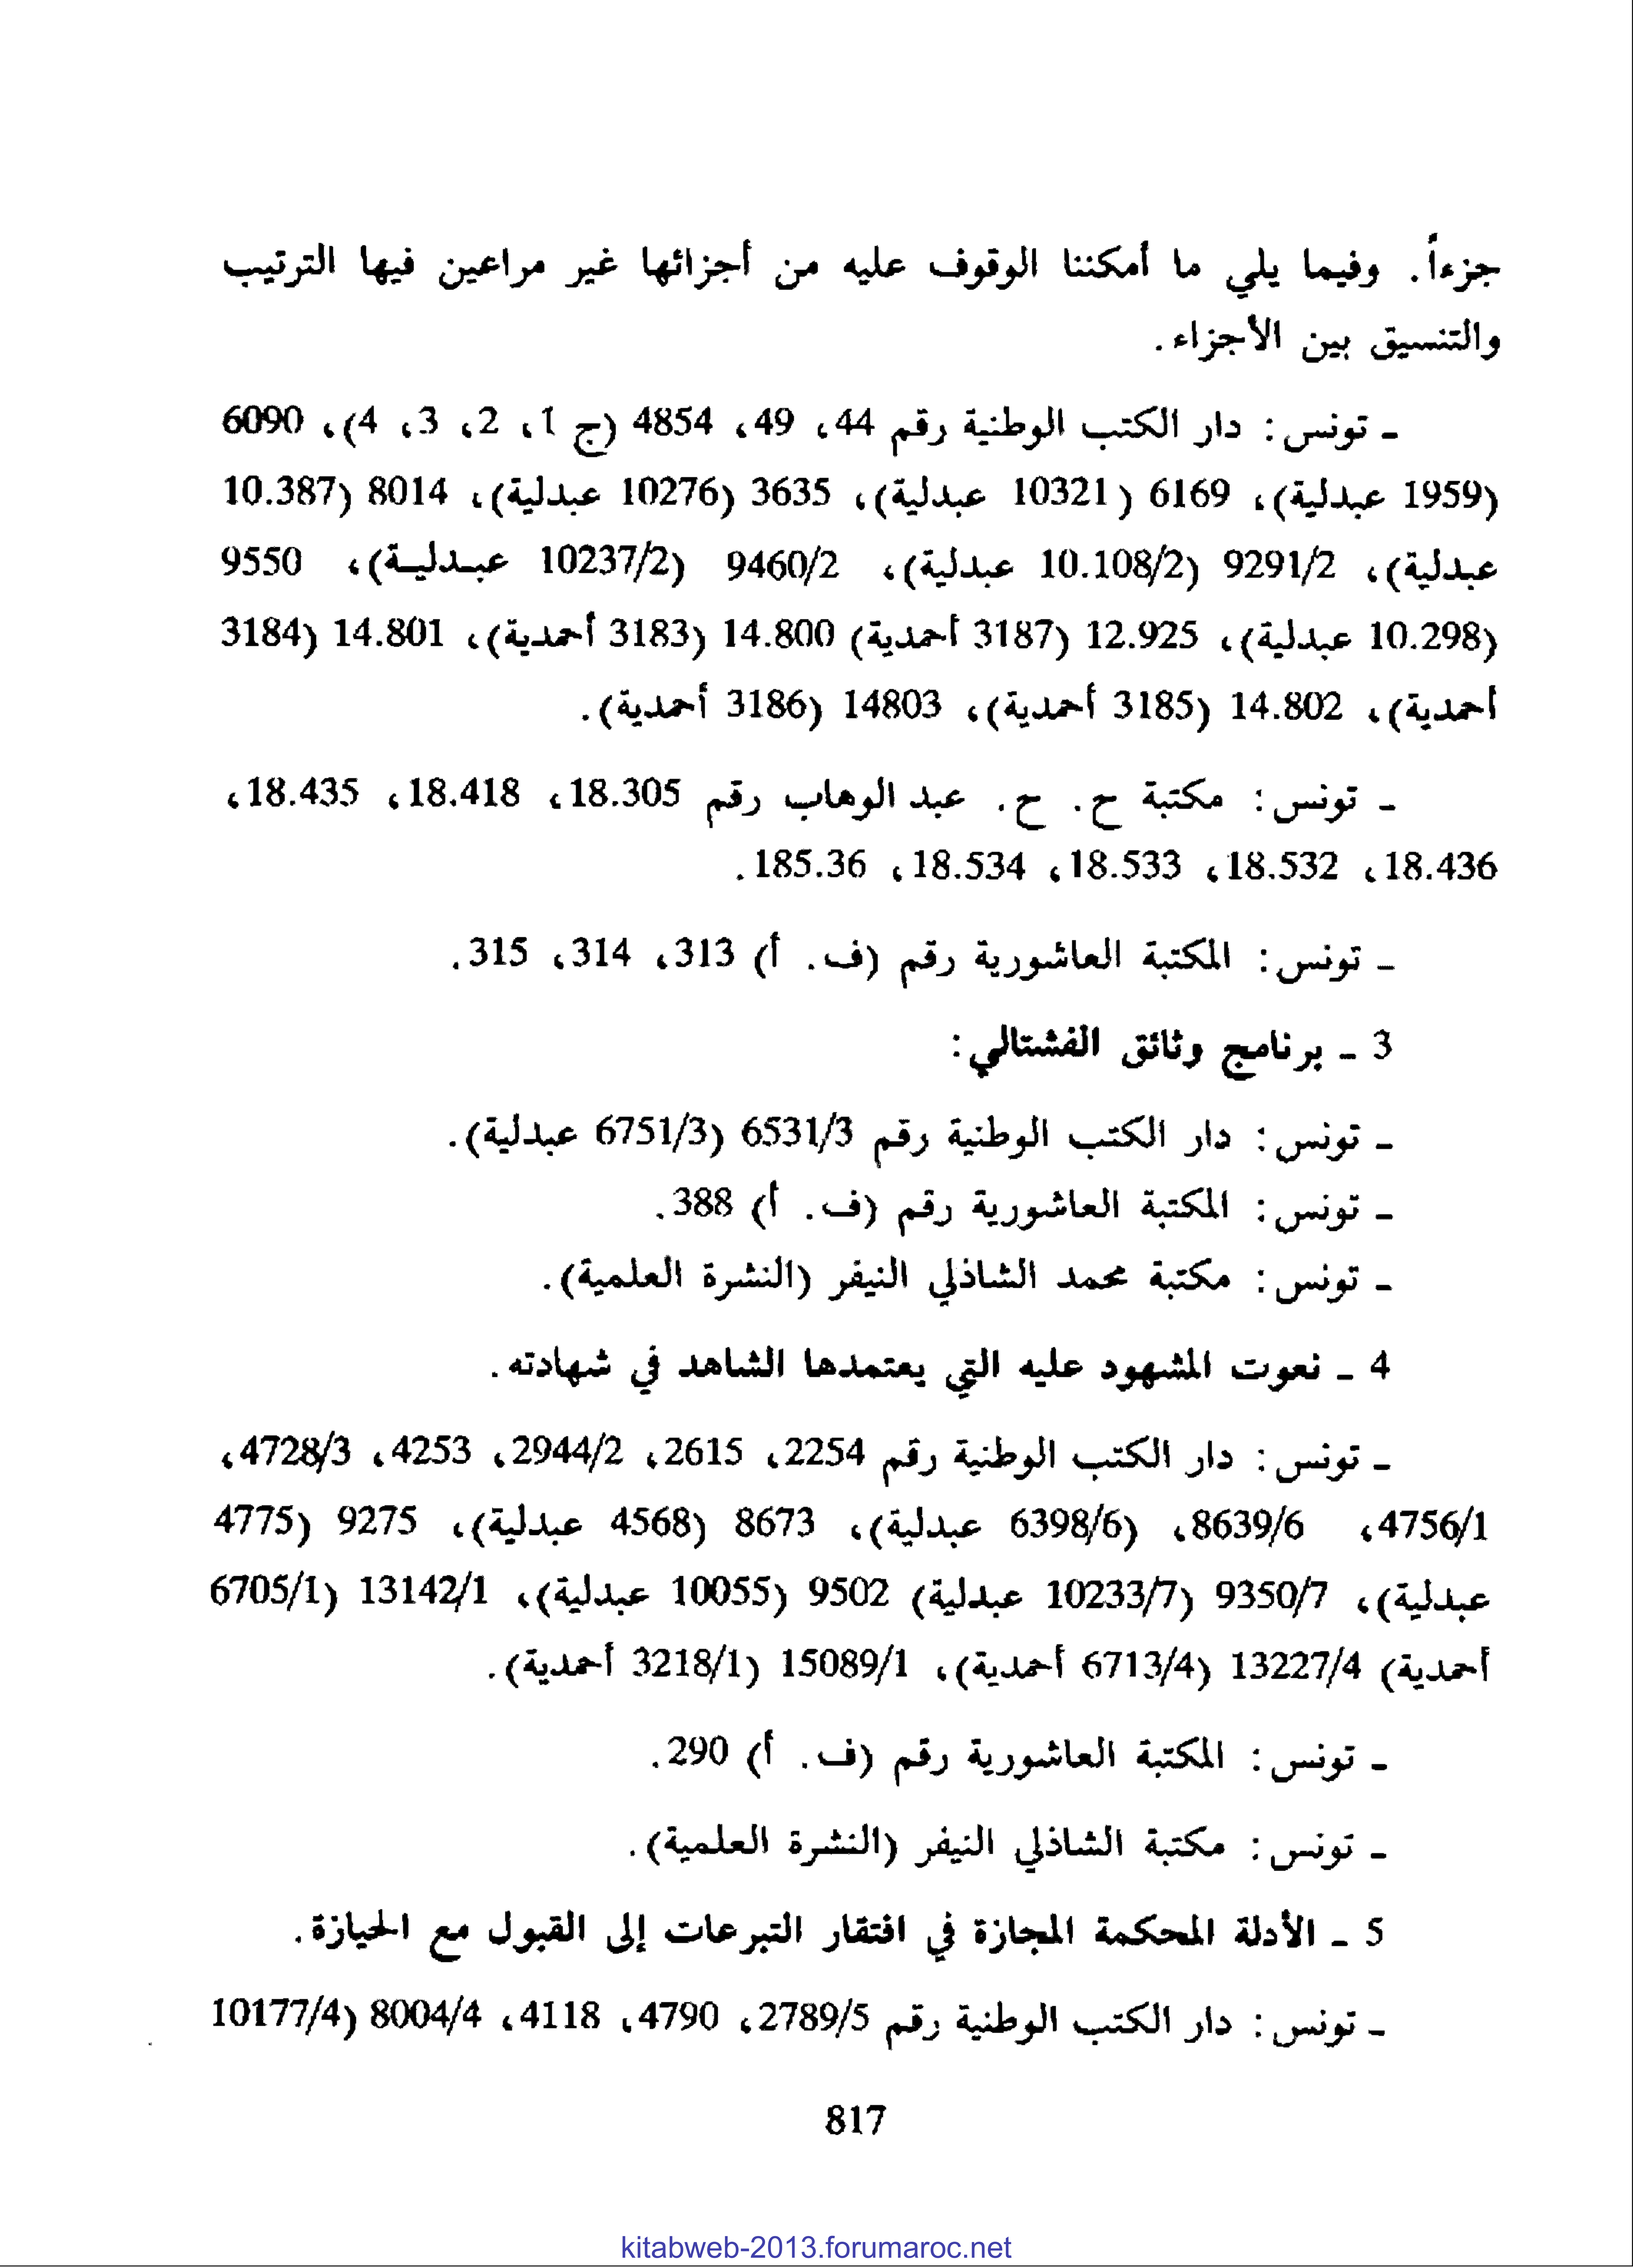 جزءاً. وفيما يلي ما أمكننا الوقوف عليه من أجزائها غير مراعين فيها الترتيب
والتنسيق بين الأجزاء.
ـ تونس: دار الكتب الوطنية رقم 44، 49، 4854 (ج 1، 2، 3، 4)، 6090
(1959 عبدلية)، 6169 (10321 عبدلية)، 3635 (10276 عبدلية)، 8014 (10.387
عبدلية)، 9291/2 (10.108/2 عبدلية)، 9460/2 (10237/2 عبـدليـة)، 9550
(10.298 عبدلية)، 12.925 (3187 أحمدية) 14.800 (3183 أحمدية)، 14.801 (3184
أحمدية)، 14.802 (3185 أحمدية)، 14803 (3186 أحمدية).
ـ تونس: مكتبة ح. ح. عبد الوهاب رقم 18.305، 18.418، 18.435،
18.436، 18.532، 18.533، 18.534، 185.36.
ـ تونس: المكتبة العاشورية رقم (ف. أ) 313، 314، 315.
3 ـ برنامج وثائق الفشتالي:
ـ تونس: دار الكتب الوطنية رقم 6531/3 (6751/3 عبدلية).
ـ تونس: المكتبة العاشورية رقم (ف. أ) 388.
ـ تونس: مكتبة محمد الشاذلي النيفر (النشرة العلمية).
4 ـ نعوت المشهود عليه التي يعتمدها الشاهد في شهادته.
ـ تونس: دار الكتب الوطنية رقم 2254، 2615، 2944/2، 4253، 4728/3،
4756/1، 8639/6، (6398/6 عبدلية)، 8673 (4568 عبدلية)، 9275 (4775
عبدلية)، 9350/7 (10233/7 عبدلية) 9502 (10055 عبدلية)، 13142/1 (6705/1
أحمدية) 13227/4 (6713/4 أحمدية)، 15089/1 (3218/1 أحمدية).
ـ تونس: المكتبة العاشورية رقم (ف. أ) 290.
ـ تونس: مكتبة الشاذلي النيفر (النشرة العلمية).
5 ـ الأدلة المحكمة المجازة في افتقار التبرعات إلى القبول مع الحيازة.
ـ تونس: دار الكتب الوطنية رقم 2789/5، 4790، 4118، 8004/4 (10177/4
817
kitabweb-2013.forumaroc.net